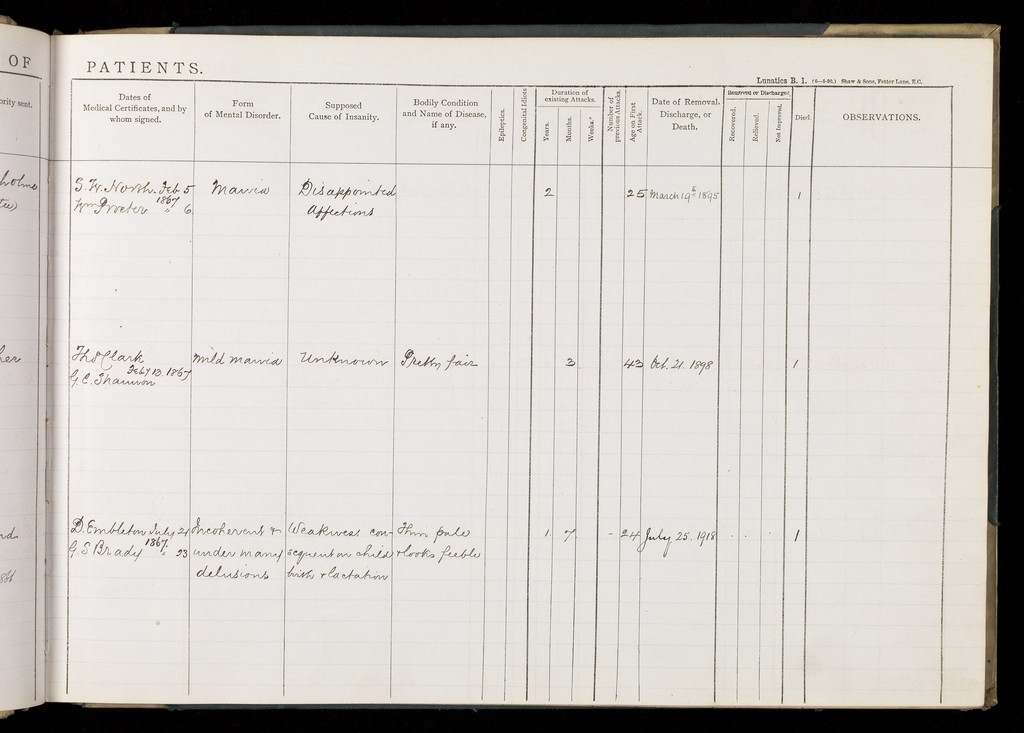 OF
PATIENTS.
Lunatics B. 1. (6—5-90.) Shaw & Sons, Fetter Lane, E.C.
ority sent.
Dates of
Medical Certificates, and by
whom signed.
Form
of Mental Disorder.
Supposed
Cause of Insanity.
Bodily Condition
and Name of Disease,
if any.
Epileptics.
Congenital Idiots
Duration of
existing Attacks.
Years.
Months.
Weeks.*
Number of
previous Attacks.
Age on First
Attack.
Date of Removal.
Discharge, or
Death.
Removed or Discharged.
Recovered.
Relieved.
Not Improved.
Died.
OBSERVATIONS.
S. W. North. Feb 5 Mania Disappointed 2 25 March 19th 1895 1
Wm Procter 1867 " 6 affections
Thos Clark mild mania Unknown Pretty fair 3 43 Oct. 21. 1898 1
Feby 13 1867
G. C. Shannon
D. Embleton July 21 Incoherent & Weakness con- Thin pale 1 7 - 24 July 25. 1918 1
G S Brady 1867 " 23 under many sequent on child & looks feeble
delusions birth & lactation